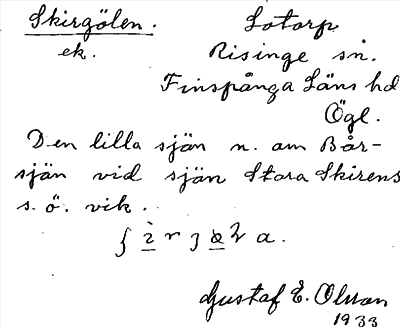 Skirgölen.
Lotorp
ek.
Risinge sn.
Finspånga Läns hd
Ögl.
Den lilla sjön n. om Bår-
sjön vid sjön Stora Skirens
s. ö. vik.
Gustaf E. Olsson
1933